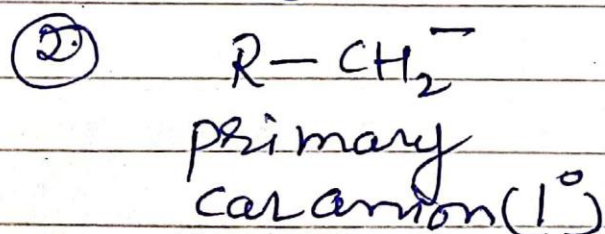 ② R — CH₂⁻
primary
caranion (1°)